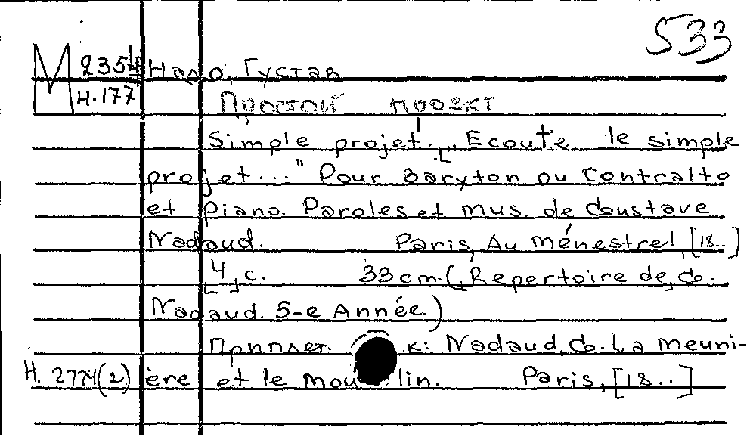 533
М 2354 Надо, Густав
Н.177
Простой проэкт
Simple projet! „Ecoute le simple
projet..." Pour baryton ou contralto
et piano. Paroles et mus. de Goustave
Nadaud. Paris, Au ménestrel, [18..]
[4] с. 33 cm. (Repertoire de G.
Nadaud. 5-e Année.)
Приплет. к: Nadaud, G. La meuni-
Н. 2774(2) ère et le moulin. Paris, [18..]